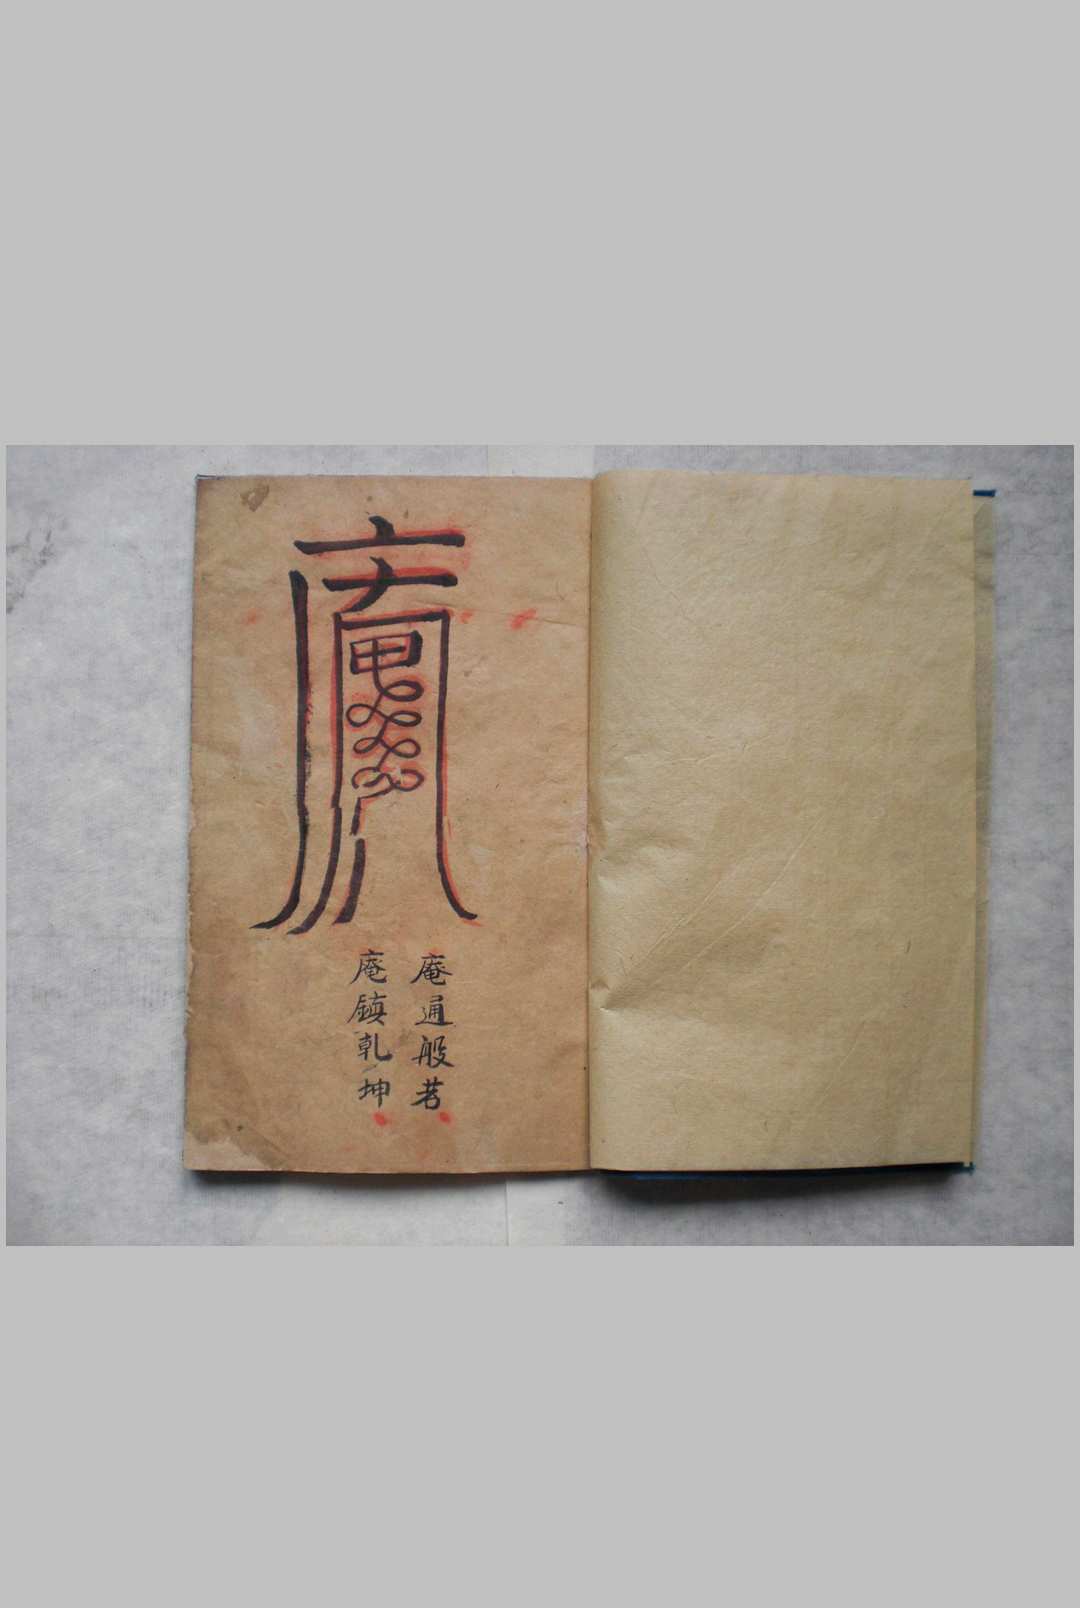 庵
庵通般若
庵鎮乾坤